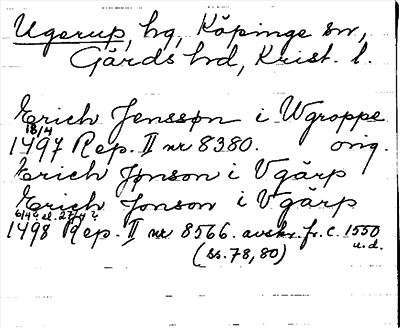 Ugerup, hg, Köpinge sn,
Gärds hd, Krist. l.
Erich Jenssøn i Wgroppe
18/4
1497 Rep. II nr 8380. orig.
Erich Jønson i Vgärp
Erich Jonson i Vgärp
6/4 el. 27/4 ?
1498 Rep. II nr 8566. avskr. fr. c. 1550
u.d.
(ss. 78, 80)